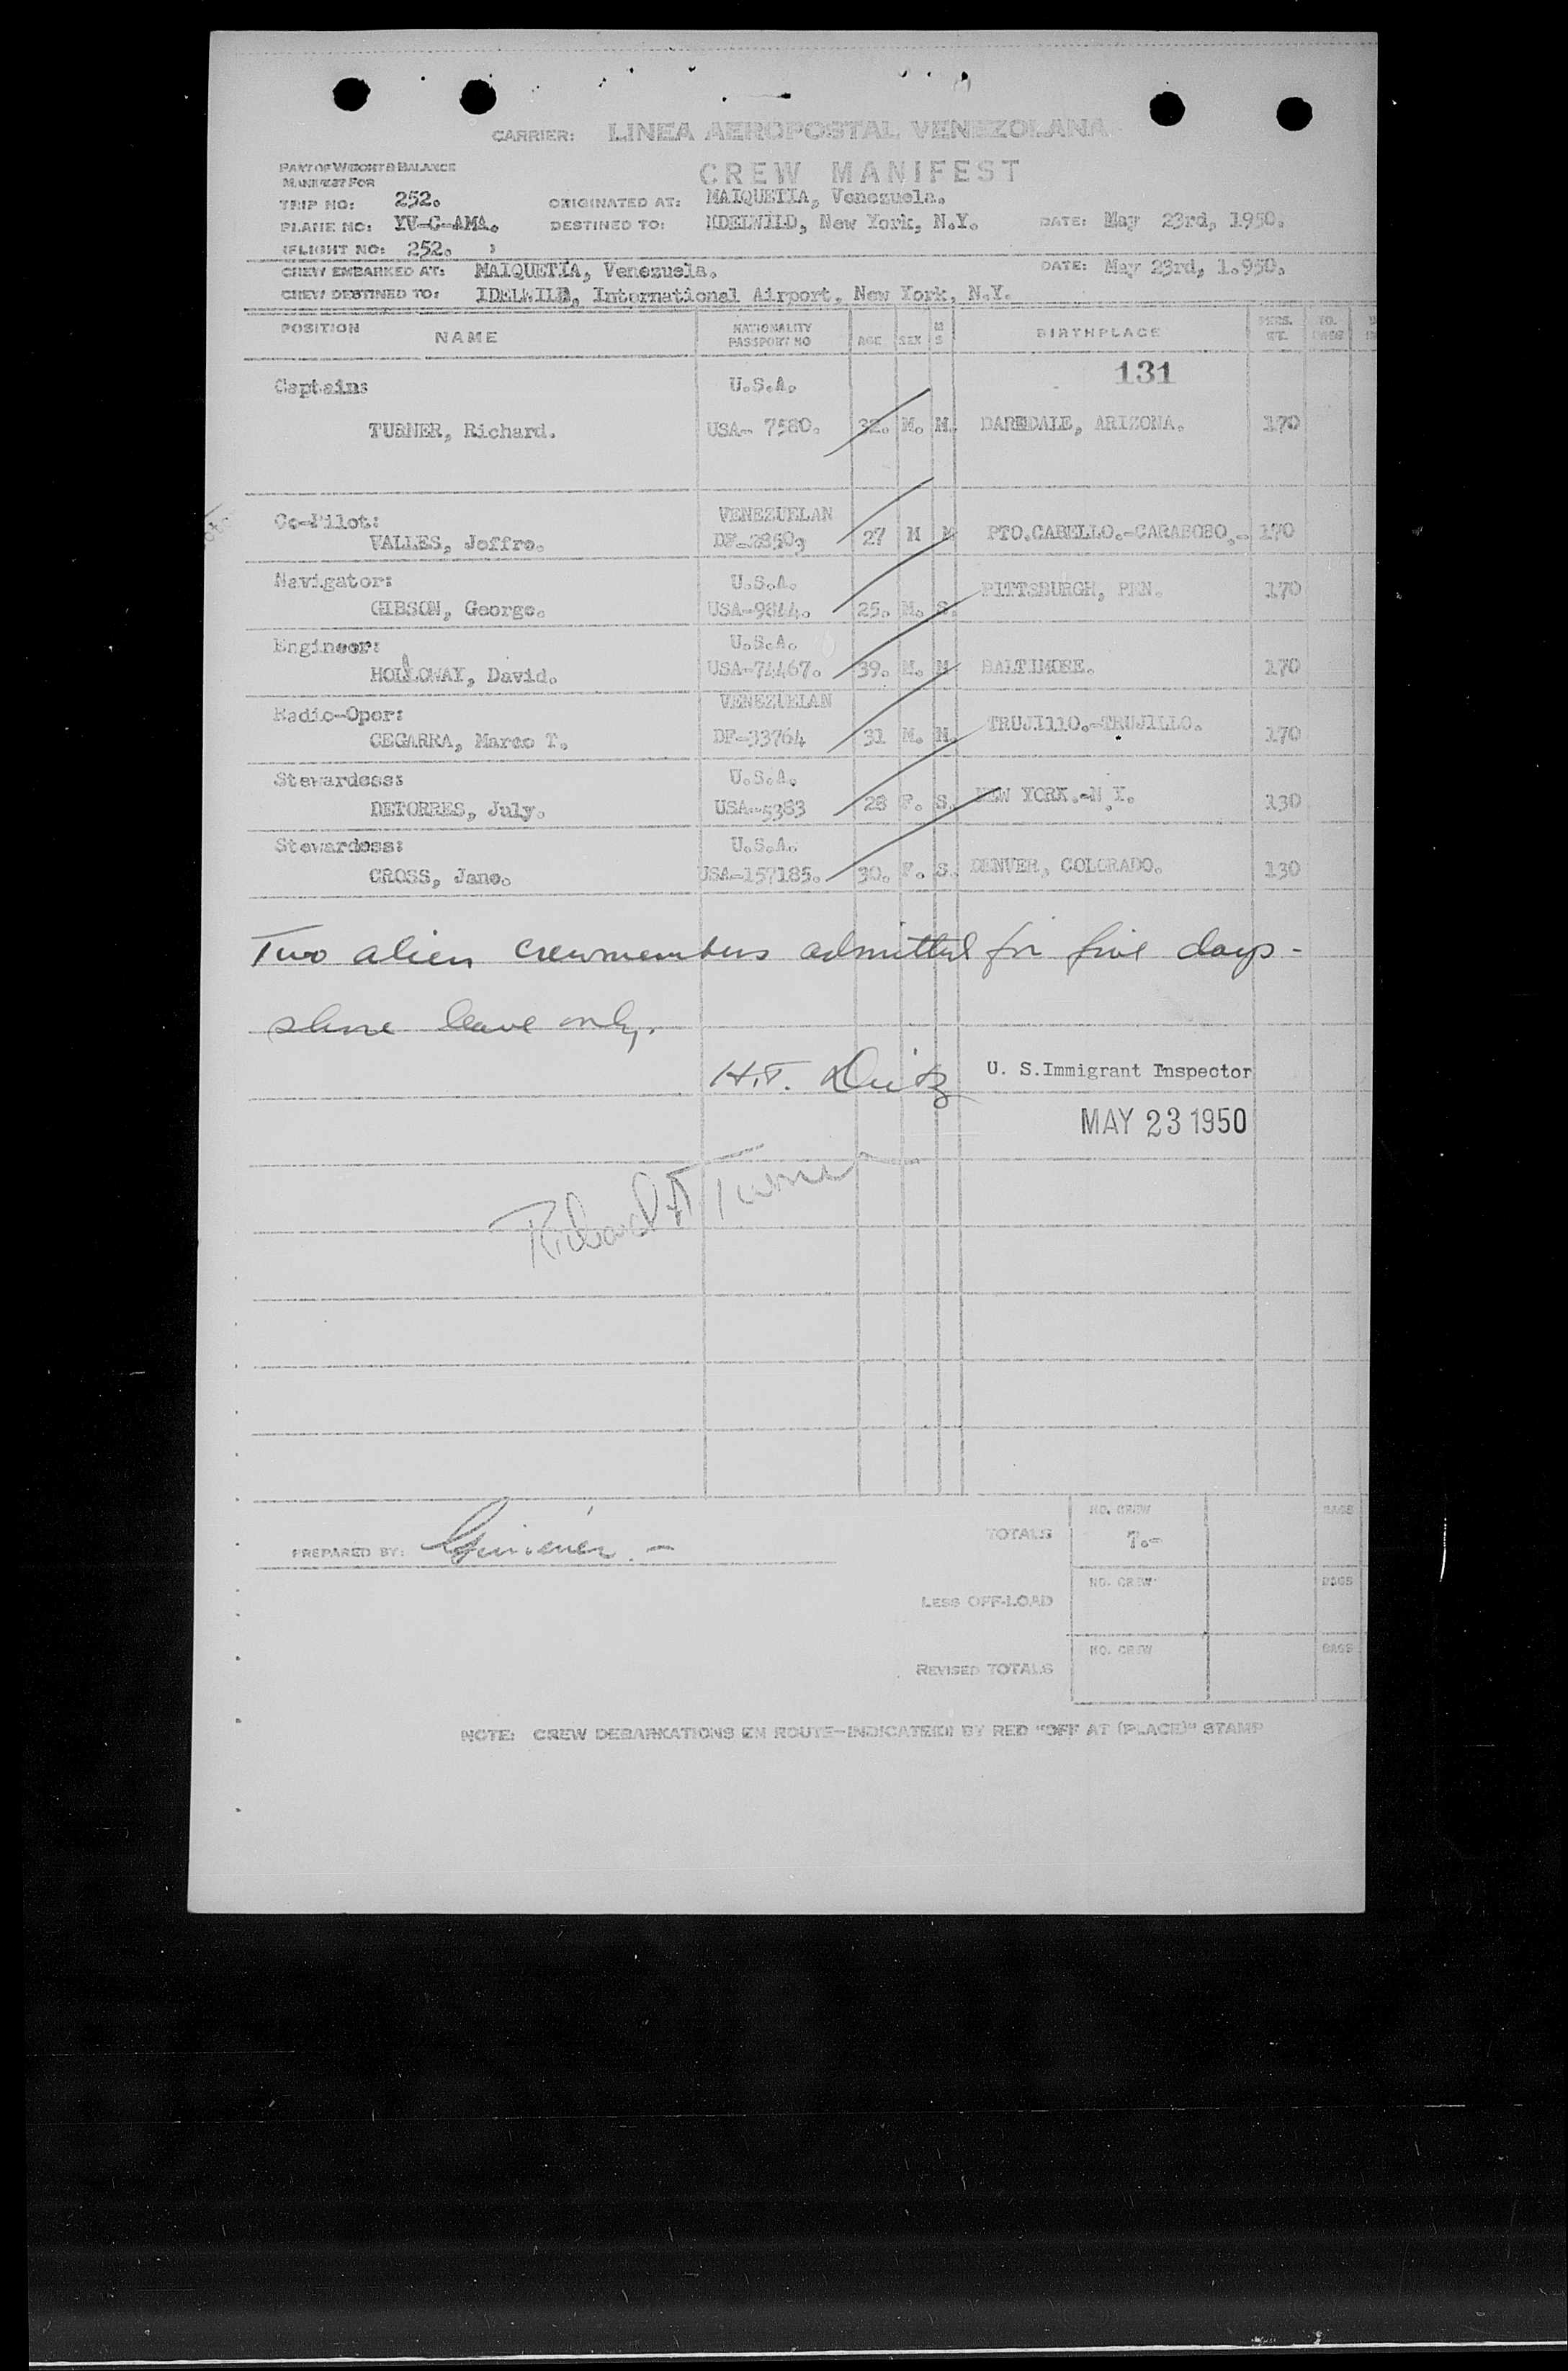 CARRIER: LINEA AEROPOSTAL VENEZOLANA
CREW MANIFEST
PART OF WEIGHT & BALANCE
MANIFEST FOR
TRIP NO: 252. ORIGINATED AT: MAIQUETIA, Venezuela.
PLANE NO: YV-C-AMA. DESTINED TO: IDELWILD, New York, N.Y. DATE: May 23rd, 1950.
(FLIGHT NO: 252. )
CREW EMBARKED AT: MAIQUETIA, Venezuela. DATE: May 23rd, 1.950.
CREW DESTINED TO: IDELWILD, International Airport, New York, N.Y.
POSITION NAME NATIONALITY PASSPORT NO AGE SEX M S BIRTHPLACE PERS. WT. NO.
131
Captain: U.S.A.
TURNER, Richard. USA- 7580. 32. M. M. , ARIZONA. 170
Co-Pilot: VENEZUELAN
VALLES, Joffre. DF-28503 27 M M PTO.CABELLO.-CARABOBO.- 170
Navigator: U.S.A.
GIBSON, George. USA-9844. 25. M. S. PITTSBURGH, PEN. 170
Engineer: U.S.A.
HOLLOWAY, David. USA-74467. 39. M. M BALTIMORE. 170
Radio-Oper: VENEZUELAN
CEGARRA, Marco T. DF-33764 31 M. M. TRUJI11O.-TRUJILLO. 170
Stewardess: U.S.A.
DETORRES, July. USA-5383 28 F. S. NEW YORK.-N.Y. 130
Stewardess: U.S.A.
CROSS, Jane. USA-157185. 30. F. S. DENVER, COLORADO. 130
Two alien crewmembers admitted for five days -
shore leave only.
H.T. U. S.Immigrant Inspector
MAY 23 1950
Richard A Turner
PREPARED BY: TOTALS NO. CREW 7.- BAGS
LESS OFF-LOAD NO. CREW BAGS
REVISED TOTALS NO. CREW BAGS
NOTE: CREW DEBARKATIONS EN ROUTE-INDICATED BY RED "OFF AT (PLACE)" STAMP